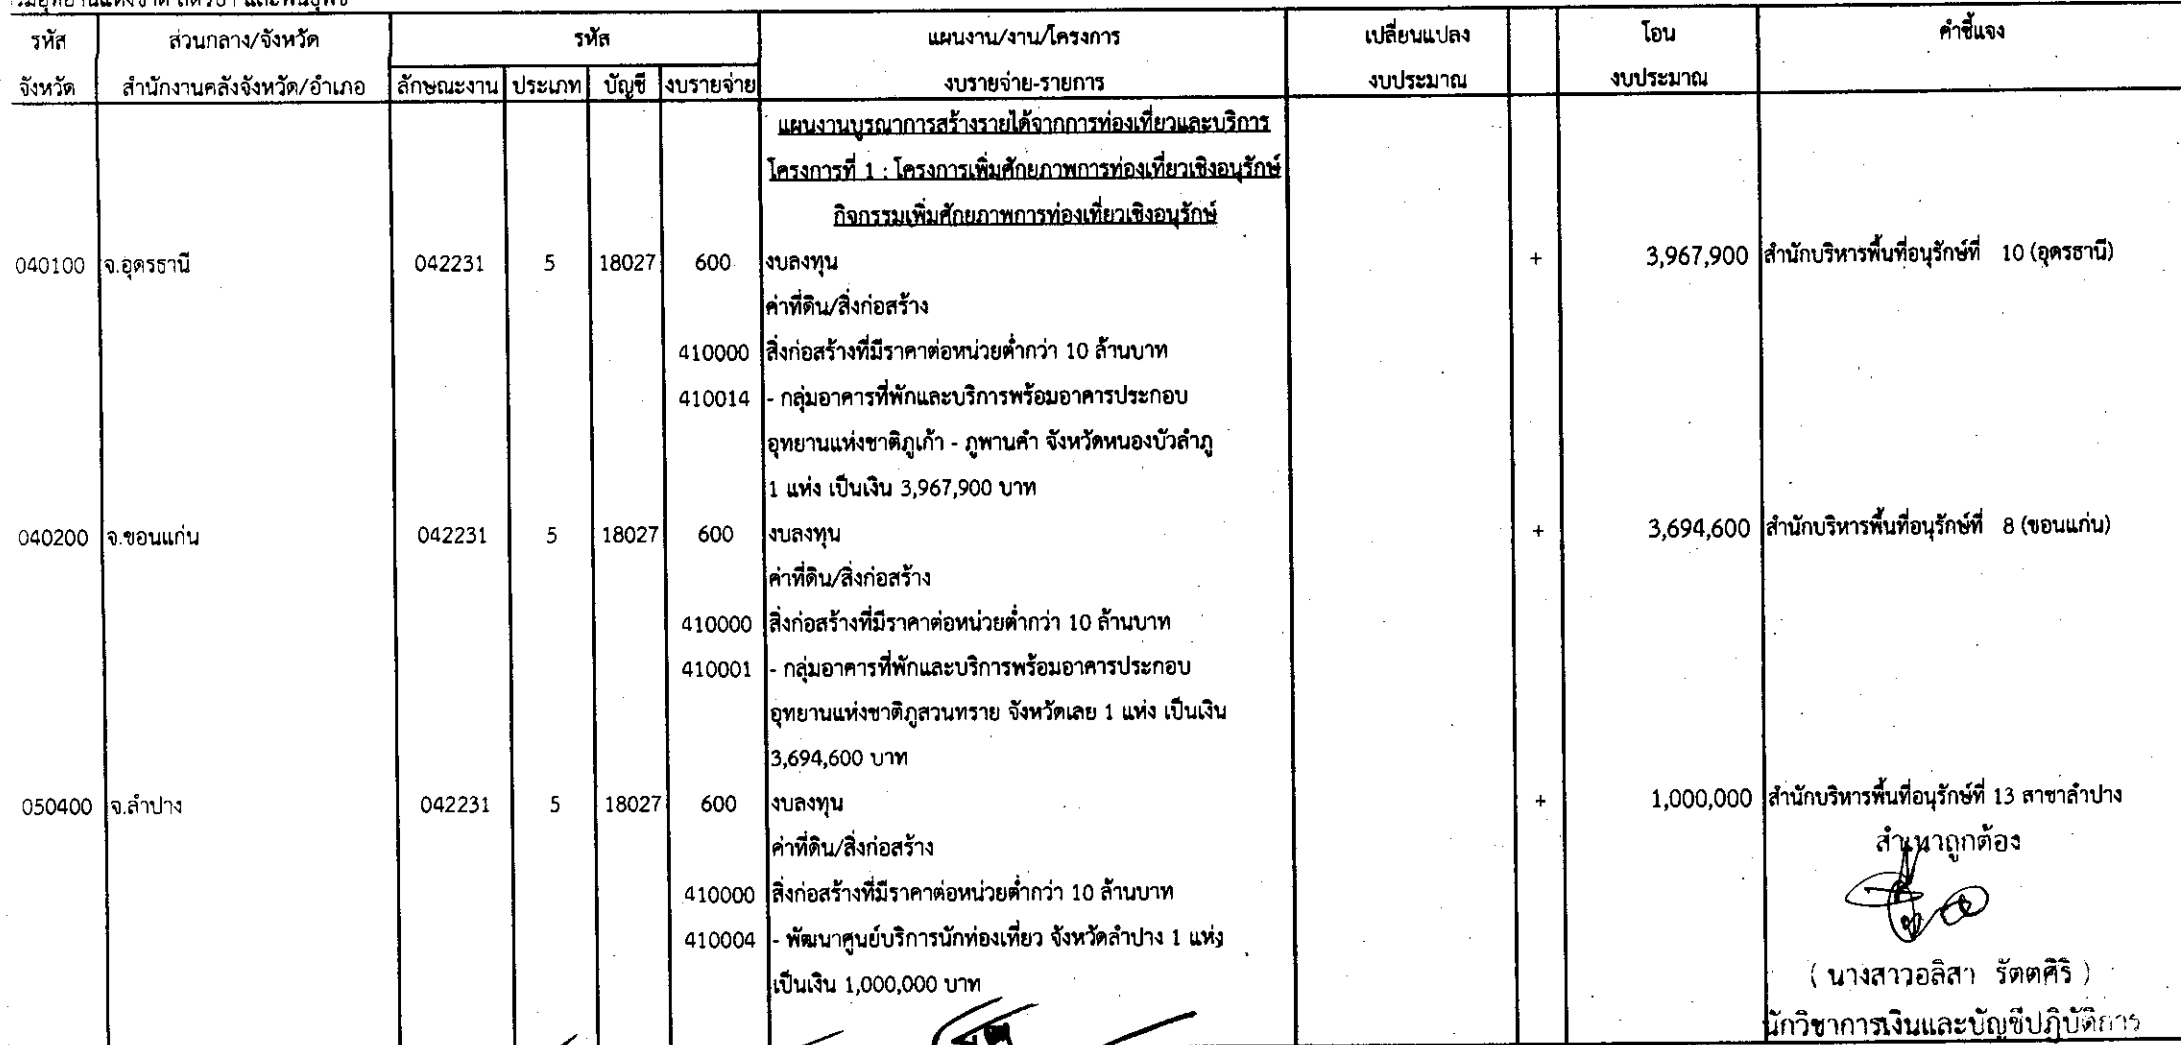 รมอุทยานแห่งชาติ สัตว์ป่า และพันธุ์พืช
รหัส ส่วนกลาง/จังหวัด รหัส แผนงาน/งาน/โครงการ เปลี่ยนแปลง โอน คำชี้แจง
จังหวัด สำนักงานคลังจังหวัด/อำเภอ ลักษณะงาน ประเภท บัญชี งบรายจ่าย งบรายจ่าย-รายการ งบประมาณ งบประมาณ
แผนงานบูรณาการสร้างรายได้จากการท่องเที่ยวและบริการ
โครงการที่ 1 : โครงการเพิ่มศักยภาพการท่องเที่ยวเชิงอนุรักษ์
กิจกรรมเพิ่มศักยภาพการท่องเที่ยวเชิงอนุรักษ์
040100 จ.อุดรธานี 042231 5 18027 600 งบลงทุน + 3,967,900 สำนักบริหารพื้นที่อนุรักษ์ที่ 10 (อุดรธานี)
ค่าที่ดิน/สิ่งก่อสร้าง
410000 สิ่งก่อสร้างที่มีราคาต่อหน่วยต่ำกว่า 10 ล้านบาท
410014 - กลุ่มอาคารที่พักและบริการพร้อมอาคารประกอบ
อุทยานแห่งชาติภูเก้า - ภูพานคำ จังหวัดหนองบัวลำภู
1 แห่ง เป็นเงิน 3,967,900 บาท
040200 จ.ขอนแก่น 042231 5 18027 600 งบลงทุน + 3,694,600 สำนักบริหารพื้นที่อนุรักษ์ที่ 8 (ขอนแก่น)
ค่าที่ดิน/สิ่งก่อสร้าง
410000 สิ่งก่อสร้างที่มีราคาต่อหน่วยต่ำกว่า 10 ล้านบาท
410001 - กลุ่มอาคารที่พักและบริการพร้อมอาคารประกอบ
อุทยานแห่งชาติภูสวนทราย จังหวัดเลย 1 แห่ง เป็นเงิน
3,694,600 บาท
050400 จ.ลำปาง 042231 5 18027 600 งบลงทุน + 1,000,000 สำนักบริหารพื้นที่อนุรักษ์ที่ 13 สาขาลำปาง
ค่าที่ดิน/สิ่งก่อสร้าง สำเนาถูกต้อง
410000 สิ่งก่อสร้างที่มีราคาต่อหน่วยต่ำกว่า 10 ล้านบาท
410004 - พัฒนาศูนย์บริการนักท่องเที่ยว จังหวัดลำปาง 1 แห่ง
เป็นเงิน 1,000,000 บาท ( นางสาวอลิสา รัตตศิริ )
นักวิชาการเงินและบัญชีปฏิบัติการ